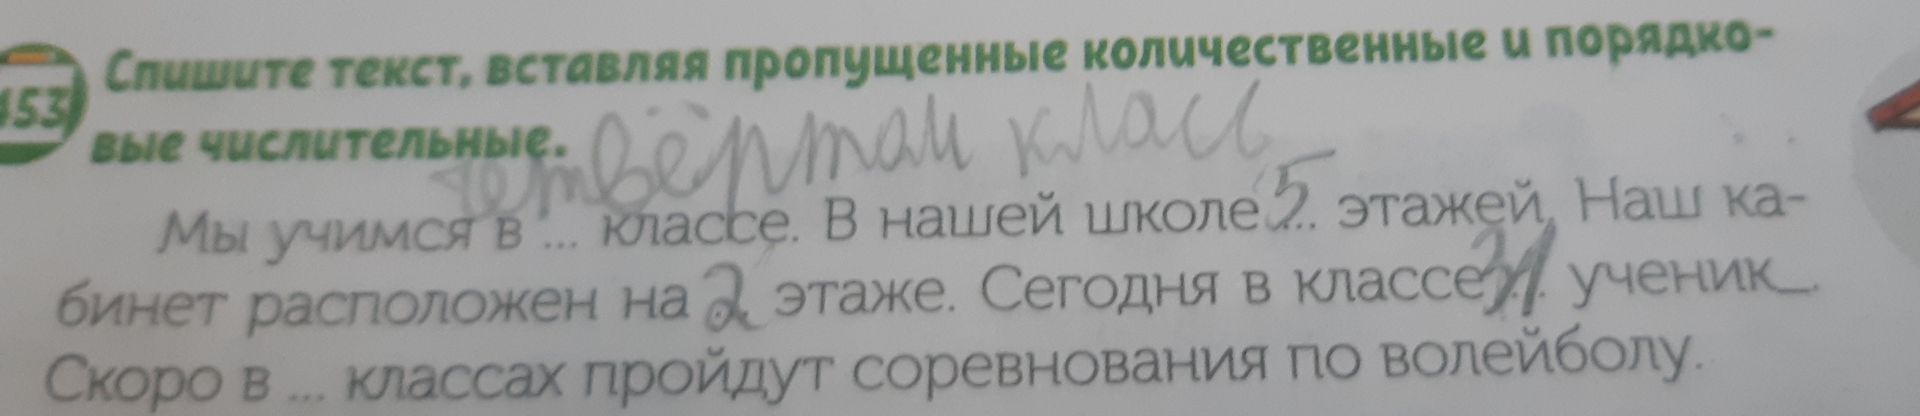 153 Спишите текст, вставляя пропущенные количественные и порядко-
вые числительные.
четвёртом класс
Мы учимся в ... классе. В нашей школе 5 ... этажей. Наш ка-
бинет расположен на 2 этаже. Сегодня в классе 31 ученик_.
Скоро в ... классах пройдут соревнования по волейболу.